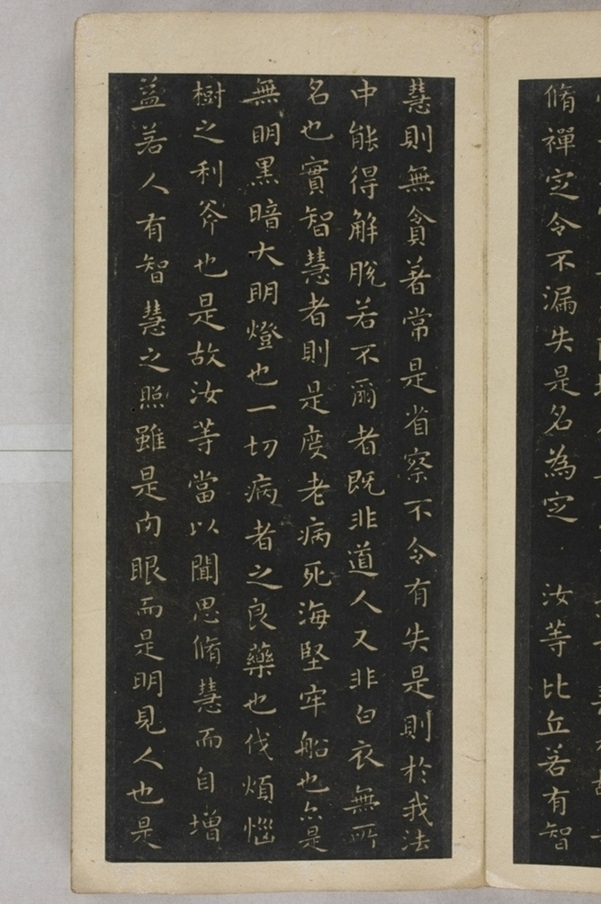 脩禪定令不漏失是名為定 汝等比丘若有智
慧則無貪著常是省察不令有失是則於我法
中能得解脫若不爾者既非道人又非白衣無所
名也實智慧者則是度老病死海堅牢船也亦是
無明黑暗大明燈也一切病者之良藥也伐煩惱
樹之利斧也是故汝等當以聞思脩慧而自增
益若人有智慧之照雖是肉眼而是明見人也是